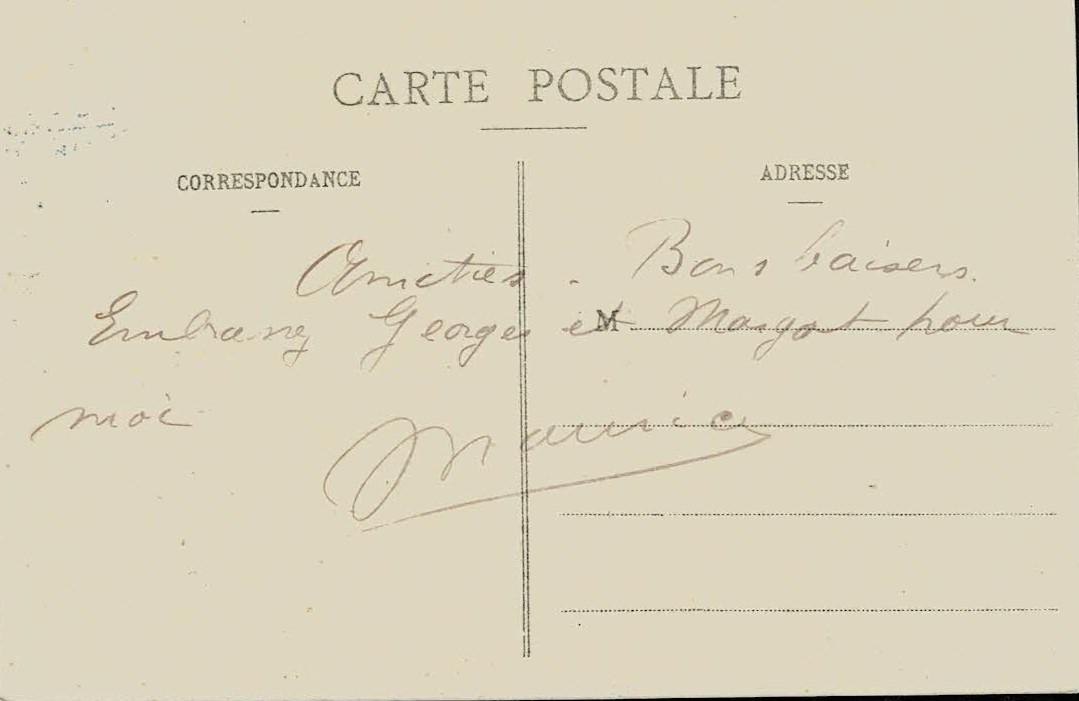 CARTE POSTALE
CORRESPONDANCE
ADRESSE
Amitiés. Bons baisers.
Embrassez Georges et Margot pour
M
moi
Maurice